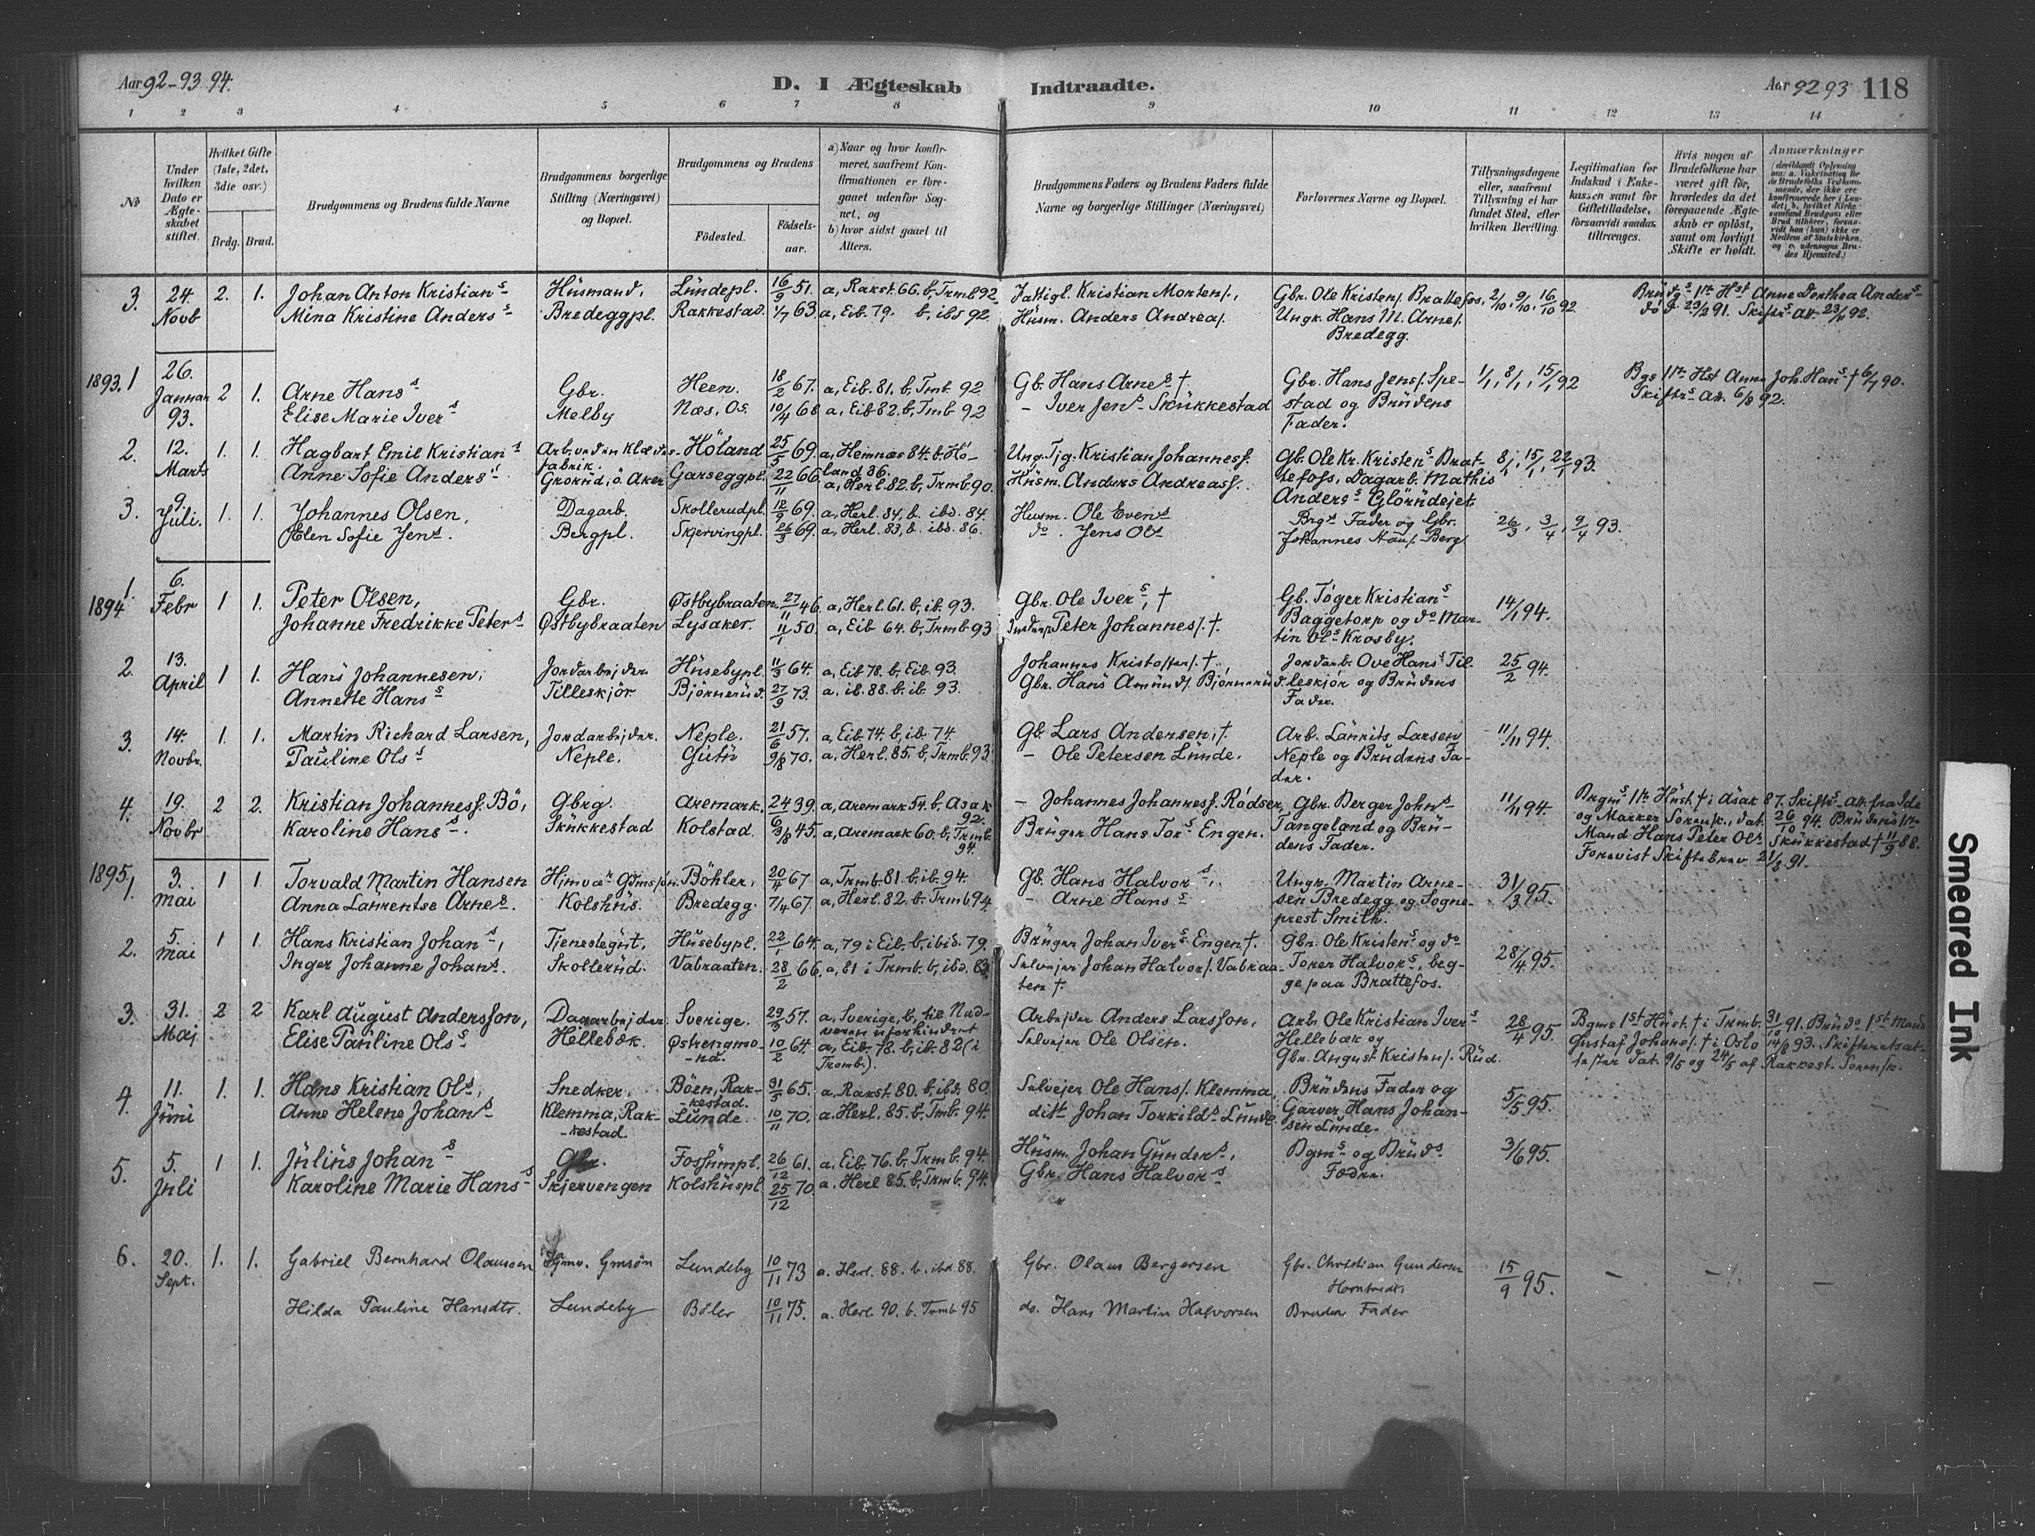 Aar 92-93 94.
D. I Ægteskab Indtraadte.
Aar 92 93 118
1 2 3 4 5 6 7 8 9 10 11 12 13 14
No
Under hvilken Dato er Ægteskabet stiftet.
Hvilket Gifte (1ste, 2det, 3die osv.)
Brdg. Brud.
Brudgommens og Brudens fulde Navne
Brudgommens borgerlige Stilling (Næringsvei) og Bopæl.
Brudgommens og Brudens
Födested.
Födselsaar.
a) Naar og hvor konfirmeret, saafremt Konfirmationen er foregaaet udenfor Sognet, og
b) hvor sidst gaaet til Alters.
Brudgommens Faders og Brudens Faders fulde Navne og borgerlige Stillinger (Næringsvei)
Forlovernes Navne og Bopæl.
Tillysningsdagene eller, saafremt Tillysning ei har fundet Sted, efter hvilken Bevilling.
Legitimation for Indskud i Enkekassen samt for Giftetilladelse, forsaavidt saadan tiltrænges.
Hvis nogen af Brudefolkene har været gift för, hvorledes da det foregaaende Ægteskab er oplöst, samt om lovligt Skifte er holdt.
Anmærkninger
3. 24. Novb 2. 1. Johan Anton Kristians Husmand, Lundepl. 16/9 51. a, Rakst. 66. b, Trmb 92 Fattigl. Kristian Mortens., Gbr. Ole Kristens. Brattefos. 2/10, 9/10, 16/10 92 Brudgs 1te Hst Anne Dorthea Anders
Mina Kristine Anders Bredeggpl. Rakkestad. 1/7 63 a, Eib. 79. b, ibd 92. Husm. Anders Andreas. Ungk. Hans M. Arnes. død 23/2 91. Skiftes. Att. 23/11 92.
Bredegg.
1893. 1 26. Januar 93. 2 1. Arne Hans Gbr. Heen. 18/2 67. a, Eib. 81. b, Tmb. 92 Gb. Hans Arnes † Gbr. Hans Jens. Spe- 1/1, 8/1, 15/1 92 Bgs 1te Hst Anne Joh. Hans † 6/7 90.
Elise Marie Ivers Melby Næs, Os. 10/4 68 a, Eib 82. b, Tmb 92 - Iver Jens Skükkestad stad og Brudens Skifts. Att. 6/8 92.
Fader.
2. 12. Marts 1. 1. Hagbart Emil Kristians Arb. ved en Klædes- Höland 25/5 69. a, Hemnæs 84. b. Hö- Ung. Tjg. Kristian Johanness. Gb. Ole Kr. Kristens Brat- 8/1, 15/1, 22/1 93.
fabrik. land 86.
Anne Sofie Anders Grorud, Ö. Aker Garseggpl. 22/11 66 a, Herl. 82. b, Trmb. 90. Husm. Anders Andreass. tefoss, Dagarb. Mathis
Anders Glörudejet
3. 9. Juli. 1. 1. Johannes Olsen, Dagarb. Skollerudpl. 12/9 69. a, Herl. 84, b. ibd. 84 Husm. Ole Evens Brgs Fader og Gbr. 26/3, 3/4, 9/4 93.
Elen Sofie Jens. Bergpl. Skjervingpl. 26/3 69. a, Herl. 83, b. ibd. 86. do. Jens Ols Johannes Hans. Berg
1894 1. 6. Febr 1 1. Peter Olsen, Gbr. Østbybraaten 27/11 46 a, Herl. 61. b, ib. 93. Gbr. Ole Ivers, † Gb. Töger Kristians 14/1 94.
Johanne Fredrikke Peters Østbybraaten Lysaker. 11/1 50. a, Eib 64. b, Trmb 93 Peter Johannes. †. Baggetorp og do Mar-
tin Ols Krosby.
2 13. April 1 1. Hans Johannesen, Jordarbejder Husebypl. 11/3 64. a, Eib 78. b, Eib. 93 Johannes Kristoffers. †. Jordarb. Ove Hans Til- 25/2 94.
Annette Hans Tilleskjör Björnerud. 27/9 73. a, ib. 88. b, ib. 93. Gbr. Hans Amunds. Bjornerud. leskjör og Brudens
Fader.
3. 14. Novbr. 1. 1. Martin Richard Larsen, Jordarbejder. Neple. 21/6 57. a, Eib. 74. b, ib. 74 Gb. Lars Andersen, †. Arb. Laurits Larsen 11/11 94.
Pauline Ols Neple. Gutu 9/8 70. a, Herl. 85. b, Trmb. 93. - Ole Petersen Lunde. Neple og Brudens Fa-
der.
4. 19. Novbr 2 2. Kristian Johanness. Bö, Gbrg. Aremark. 24/6 39. a, Aremark 54. b, Asak 92. - Johannes Johanness. Rödser, Gbr. Berger Johns 11/11 94. Brgms 1te Hust. † i Asak 87. Skifts.-Att. fra Ide
Karoline Hans. Skükkestad Kolstad. 3/8 45. a, Aremark 60. b, Trmb. 94. Bruger Hans Tors Engen. Tangeland og Bru- og Marker Sorensk., dat. 26/10 94. Brudens 1te
dens Fader. Mand Hans Peter Ols Skükkestad † 11/9 88.
Forevist Skiftebrev 21/8 91.
1895. 1. 3. Mai 1 1. Torvald Martin Hansen Böhler, 20/4 67 a, Trmb. 81. b, ib. 94. Gb. Hans Halvors, Ungk. Martin Arne- 31/3 95.
Anna Laurentse Arnes. Kolshus. Bredegg. 7/4 67. a, Herl. 82. b, Trmb 94. - Arne Hans sen Bredegg og Sogne-
prest Smith.
2. 5. Mai 1 1. Hans Kristian Johans, Tjenestegut, Husebypl. 22/1 64. a, 79 i Eib. b, ibid. 79. Bruger Johan Ivers Engen †. Gbr. Ole Kristens og do 28/4 95.
Inger Johanne Johans. Skollerud. Vabraaten. 28/2 66. a, 81 i Trmb. b, ibd. 83. Selvejer Johan Halvors. Vabraa- Torer Halvors, beg-
ten †. ge paa Brattefos.
3. 31. Maj 2 2 Karl August Andersson, Dagarbejder Sverige. 29/9 57. a, Sverige, b, til Nad- Arbejder Anders Larsson, Arb. Ole Kristian Ivers 28/4 95. Bgms 1st Hust. † i Trmb. 31/10 91. Bruds 1st Mand
veren uforhindret
Elise Pauline Ols Hellebæk. Østrengmo- 10/2 64. a, Eib. 78. b, ib. 82 (i Selvejer Ole Olsen. Hellebæk og Gustaf Johans. † i Oslo 14/8 93. Skifteretsat-
na. Trmb.). Gbr. August Kristens. Rud. tester dat. 9/5 og 24/5 af Rakkest. Sorensk.
4. 11. Juni 1. 1. Hans Kristian Ols, Snedker, Böen, Rak- 31/5 65. a, Rakst. 80. b, ibd. 80. Selvejer Ole Hans. Klemma, Brudens Fader og 5/5 95.
kestad.
Anne Helene Johans Klemma, Rak- Lunde. 10/11 70. a, Herl. 85. b, Tmb. 94. ditt Johan Torkilds Lunde. Garver Hans Johan-
kestad. sen Lunde.
5. 5. Juli 1 1. Julius Johans Gbr. Fossumpl. 26/12 61. a, Eib. 76. b, Trmb. 94. Husm. Johan Gunders, Bgms og Bruds 3/6 95.
Karoline Marie Hans Skjervengen Kolshuspl. 25/12 70. a, Herl 85. b, Trmb. 94. Gbr. Hans Halvors Fædre.
6. 20. Sept. 1. 1. Gabriel Bernhard Olaussen Hjmv. Gmsøn Lundeby 10/11 73 a. Herl. 88. b. ibd 88. Gbr. Olaus Bergersen Gbr. Christian Gundersen 15/9 95. - - -
Hilda Pauline Hansdtr. Lundeby Böler 10/11 75. a. Herl. 90. b. Trmb 95 do. Hans Martin Halvorsen Bruden Fader
Smeared Ink